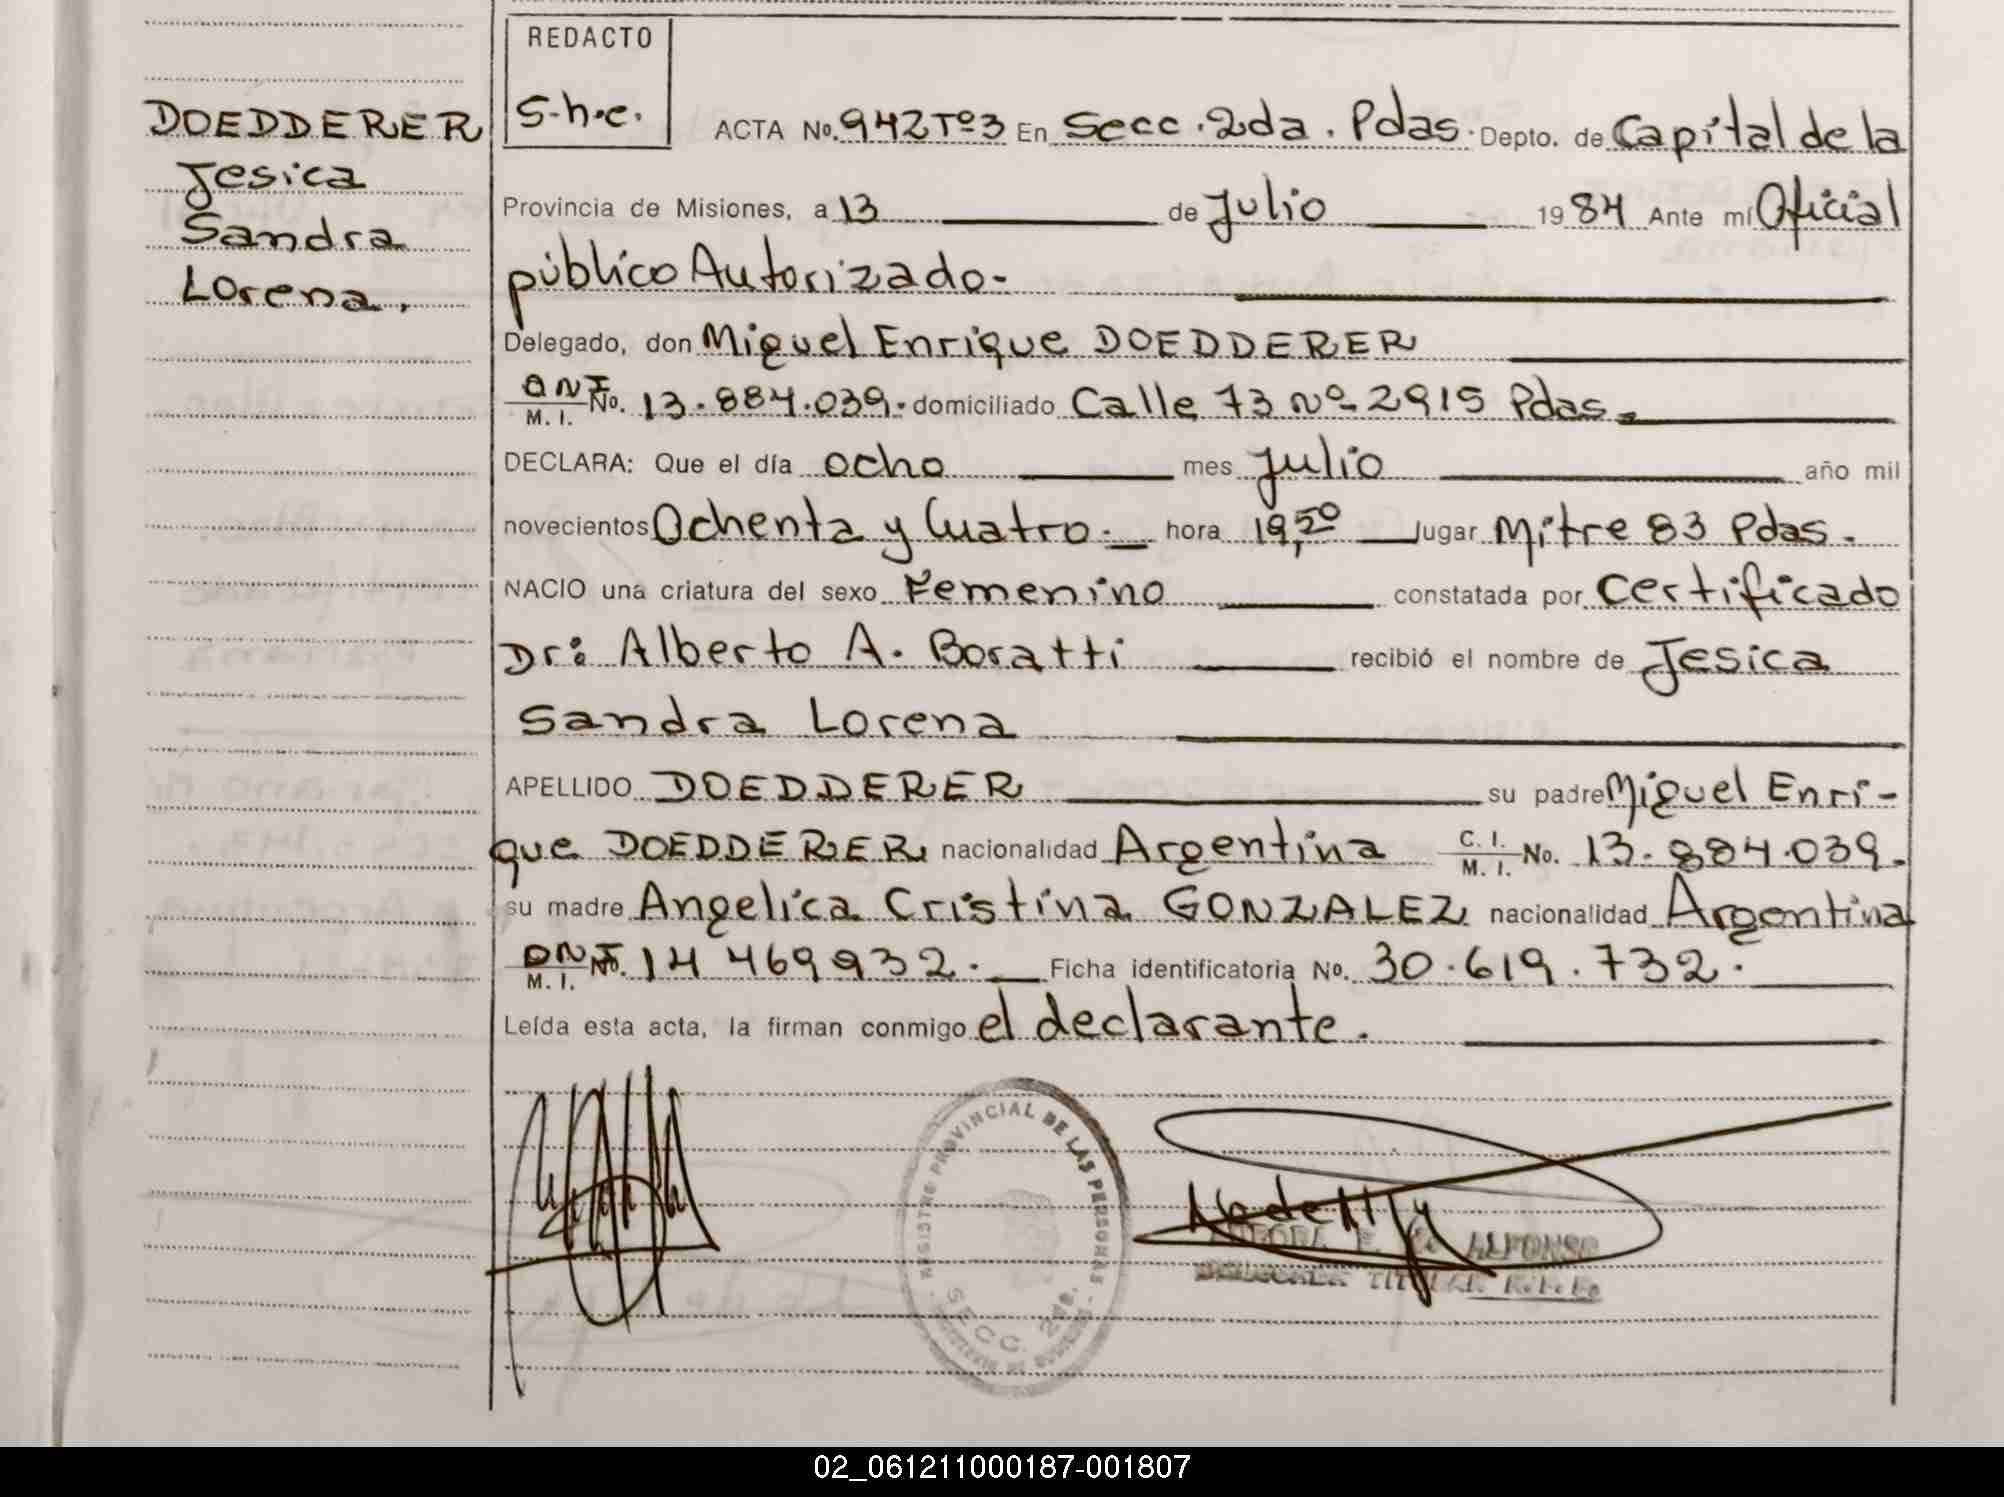 REDACTO
S.h.e.
DOEDDERER
Jesica
Sandra
Lorena.
ACTA No. 942 Tº3 En Secc. 2da. Pdas. Depto. de Capital de la
Provincia de Misiones, a 13 de Julio 1984 Ante mí Oficial
público Autorizado-
Delegado, don Miguel Enrique DOEDDERER
DNI M. I. No. 13.884.039. domiciliado Calle 73 nº 2915 Pdas.
DECLARA: Que el día ocho mes Julio año mil
novecientos Ochenta y Cuatro. hora 19,50 lugar Mitre 83 Pdas.
NACIO una criatura del sexo Femenino constatada por Certificado
Dr: Alberto A. Boratti recibió el nombre de Jesica
Sandra Lorena
APELLIDO DOEDDERER su padre Miguel Enri-
que DOEDDERER nacionalidad Argentina C. I. M. I. No. 13.884.039.
su madre Angelica Cristina GONZALEZ nacionalidad Argentina
DNI M. I. No. 14 469932. Ficha identificatoria No. 30.619.732.
Leída esta acta, la firman conmigo el declarante.
REGISTRO PROVINCIAL DE LAS PERSONAS
SECC. 2da.
ALFONSO
TITULAR
02_061211000187-001807